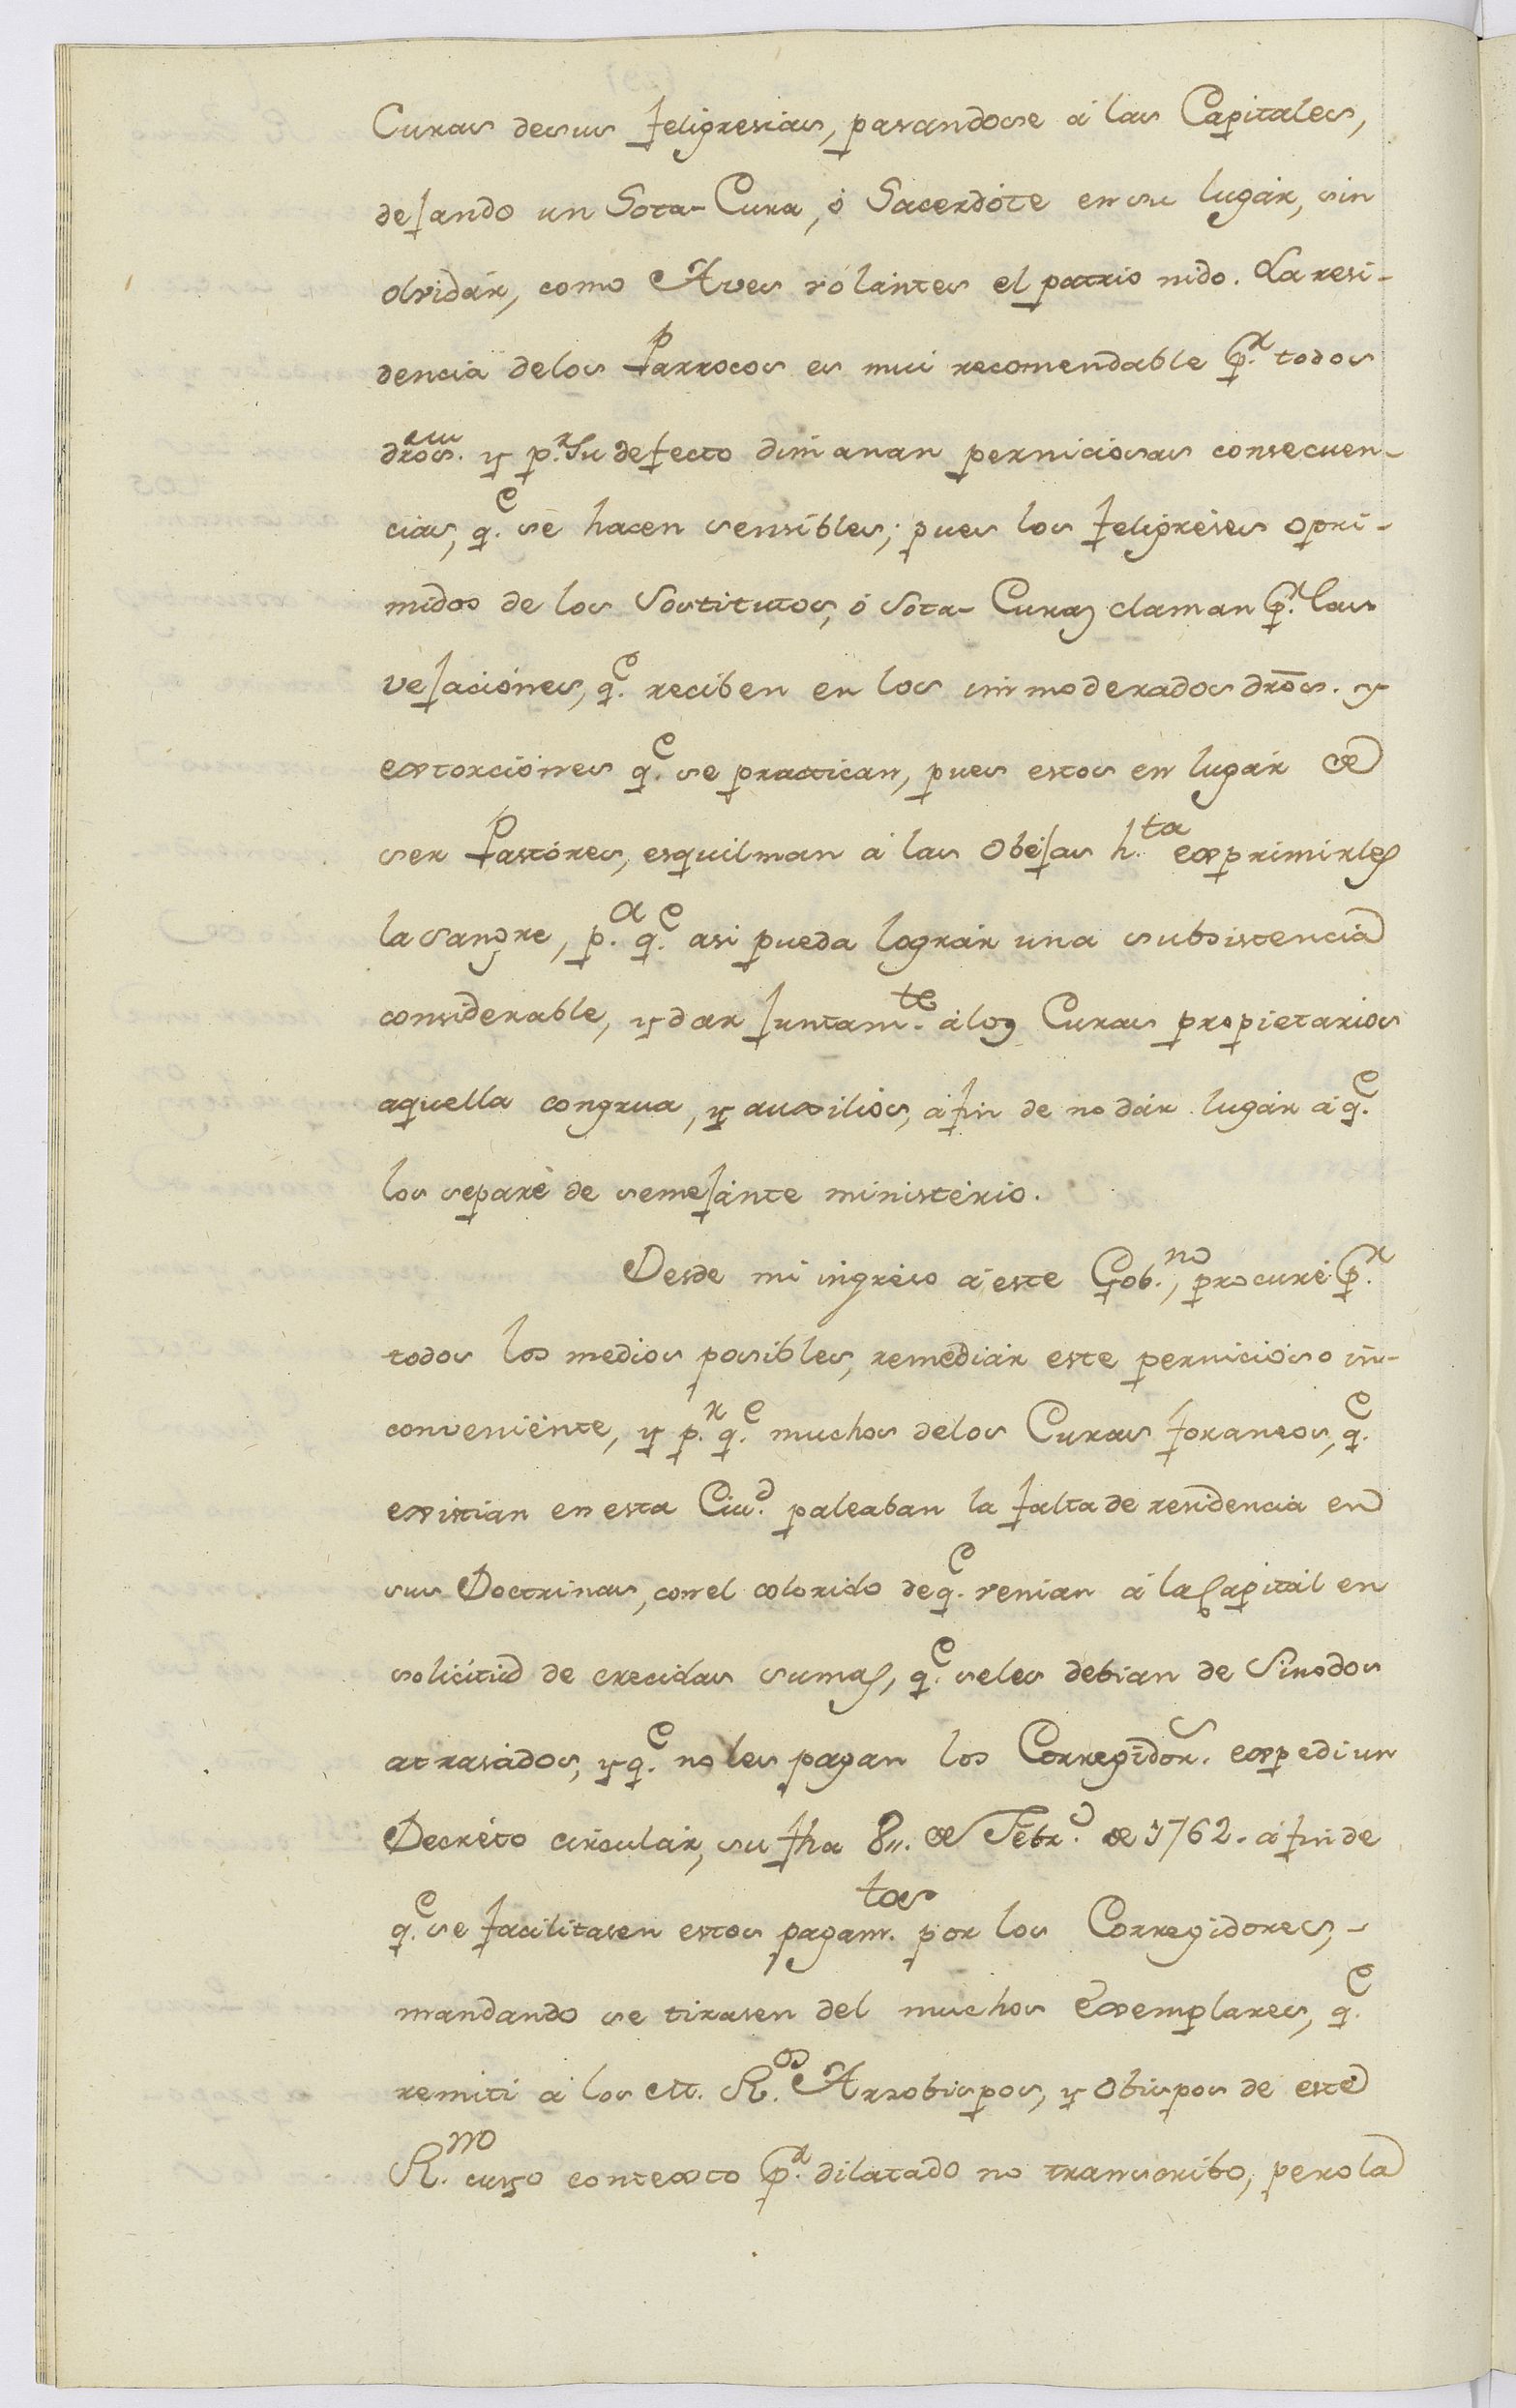 Curas desus feligresias, pasandose á las Capitales,
dejando un Sota-Cura, ó Sacerdóte en su lugár, sin
olvidár, como Aves volántes el patrio nido. La resi-
dencia delos Parrocos es mui recomendable p.r todos
dros. y p.r su defecto dimanan perniciosas consecuen-
cias, q.e se hacen sensibles; pues los feligréses opri-
midos de los Sostitutos, ó Sota-Curas claman p.r las
vejaciónes, q.e reciben en los inmoderados dros. y
extorciónes q.e se practican, pues estos en lugár de
ser Pastóres, esquilman á las Obéjas h.ta exprimirles
la sangre, p.a q.e asi pueda lográr una subsistencia
considerable, y dar juntam.te á los Curas propietarios
aquella congrua, y auxilios, á fin de no dár lugár á q.e
los separé de semejánte ministério.
Desde mi ingréso á este Gob.no, procuré p.r
todos los medios posibles, remediár este pernicióso in-
conveniénte, y p.r q.e muchos delos Curas foraneos, q.e
existian en esta Ciu.d paleaban la falta de residencia en
sus Doctrinas, con el colorido de q.e venian á la Capitál en
solicitúd de crecidas sumas, q.e seles debian de Sinodos
atrasádos, y q.e no les pagan los Corregidor.s expedi un
Decréto circulár, su fha 8,, de Febr.o de 1762. á fin de
q.e se facilitasen estos pagam.tos por los Corregidores,-
mandando se tirasen del muchos Exemplares, q.e
remiti á los M. R.os Arzobispos, y Obispos de este
R.no cuyo contexto p.r dilatado no transcribo, pero la